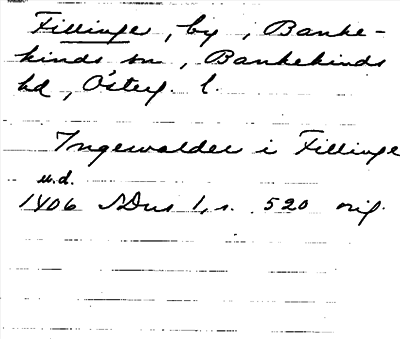 Fillinge, by, Banke-
kinds sn, Bankekinds
hd, Österg. l.
Ingewalder i Fillinge
u.d.
1406 SDns 1, s. 520 orig.